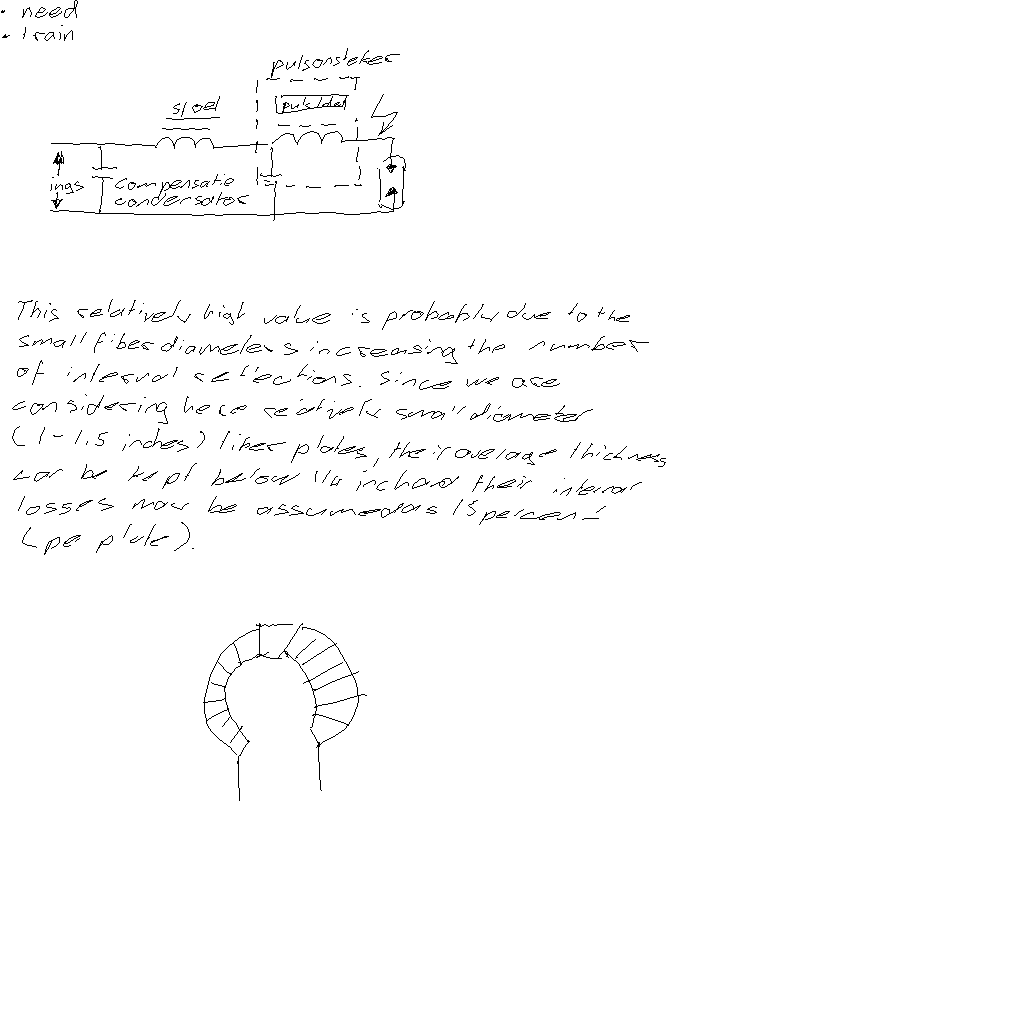 • need
• train
pulsonsteker
spoel
ings
compensatie
condensator
This relatively high value is probably due to the
small fiber diameters increasing the number
of internal reflections. Since we are
considering here relatively small diameter
(1-1.5 inches) fiber plates, their average thickness
can be kept below 1/4 inch and their internal
losses may be assumed as 15 percent
(pe plate).